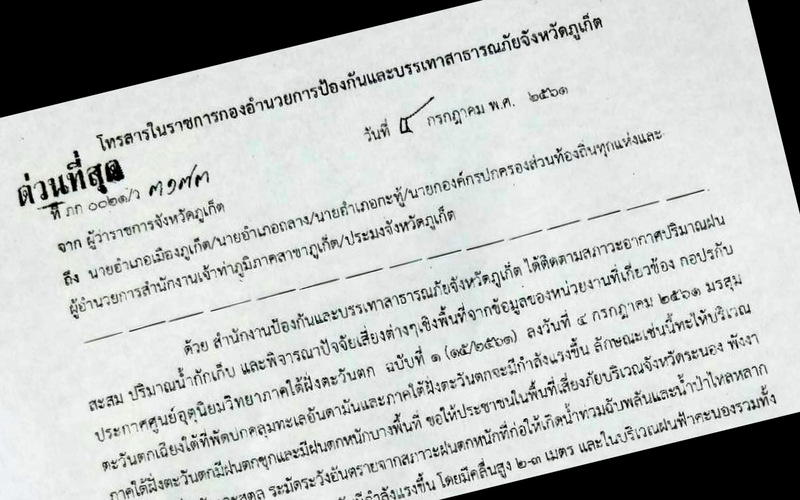 โทรสารในราชการกองอำนวยการป้องกันและบรรเทาสาธารณภัยจังหวัดภูเก็ต
วันที่ ๔ กรกฎาคม พ.ศ. ๒๕๖๑
ด่วนที่สุด
ที่ ภก ๐๐๒๑/ว ๓๑๗๓
จาก ผู้ว่าราชการจังหวัดภูเก็ต
ถึง นายอำเภอเมืองภูเก็ต/นายอำเภอถลาง/นายอำเภอกะทู้/นายกองค์กรปกครองส่วนท้องถิ่นทุกแห่งและ
ผู้อำนวยการสำนักงานเจ้าท่าภูมิภาคสาขาภูเก็ต/ประมงจังหวัดภูเก็ต
ด้วย สำนักงานป้องกันและบรรเทาสาธารณภัยจังหวัดภูเก็ต ได้ติดตามสภาวะอากาศปริมาณฝน
สะสม ปริมาณน้ำกักเก็บ และพิจารณาปัจจัยเสี่ยงต่างๆเชิงพื้นที่จากข้อมูลของหน่วยงานที่เกี่ยวข้อง กอปรกับ
ประกาศศูนย์อุตุนิยมวิทยาภาคใต้ฝั่งตะวันตก ฉบับที่ ๑ (๑๕/๒๕๖๑) ลงวันที่ ๔ กรกฎาคม ๒๕๖๑ มรสุม
ตะวันตกเฉียงใต้ที่พัดปกคลุมทะเลอันดามันและภาคใต้ฝั่งตะวันตกจะมีกำลังแรงขึ้น ลักษณะเช่นนี้ทะให้บริเวณ
ภาคใต้ฝั่งตะวันตกมีฝนตกชุกและมีฝนตกหนักบางพื้นที่ ขอให้ประชาชนในพื้นที่เสี่ยงภัยบริเวณจังหวัดระนอง พังงา
ระมัดระวังอันตรายจากสภาวะฝนตกหนักที่ก่อให้เกิดน้ำท่วมฉับพลันและน้ำป่าไหลหลาก
มีกำลังแรงขึ้น โดยมีคลื่นสูง ๒-๓ เมตร และในบริเวณฝนฟ้าคะนองรวมทั้ง